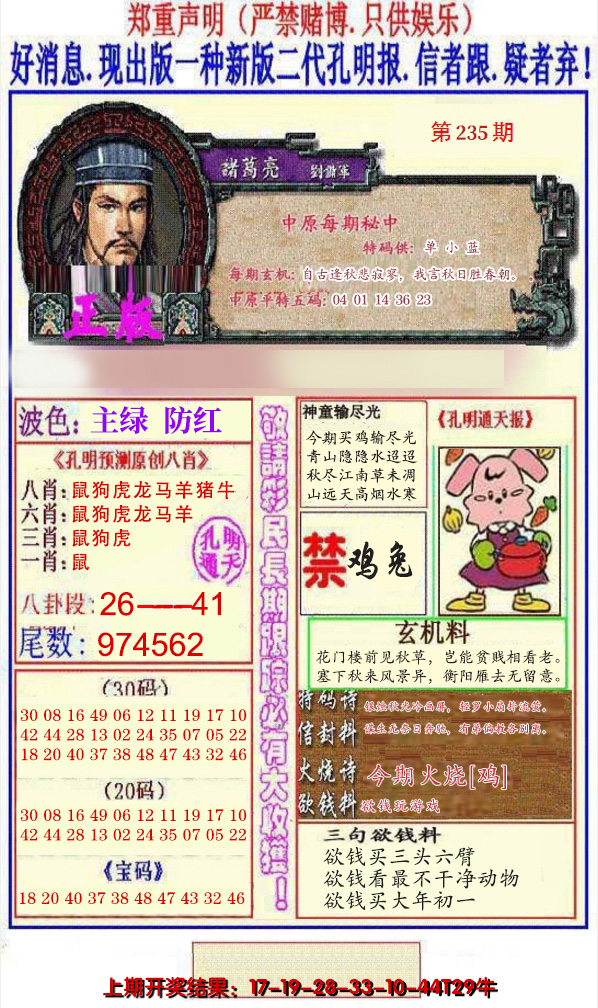 郑重声明（严禁赌博.只供娱乐）
好消息.现出版一种新版二代孔明报.信者跟.疑者弃！
第235期
諸葛亮 劉備軍
中原每期秘中
特码供: 单小蓝
每期玄机: 自古逢秋悲寂寥，我言秋日胜春朝。
中原平特五码: 04 01 14 36 23
正版
波色: 主绿 防红
《孔明预测原创八肖》
八肖: 鼠狗虎龙马羊猪牛
六肖: 鼠狗虎龙马羊
三肖: 鼠狗虎
一肖: 鼠
孔明
通天
八卦段: 26——41
尾数: 974562
（30码）
30 08 16 49 06 12 11 19 17 10
42 44 28 13 02 24 35 07 05 22
18 20 40 37 38 48 47 43 32 46
（20码）
30 08 16 49 06 12 11 19 17 10
42 44 28 13 02 24 35 07 05 22
《宝码》
18 20 40 37 38 48 47 43 32 46
敬請彩民長期跟踪必有大收獲！
神童输尽光
今期买鸡输尽光
青山隐隐水迢迢
秋尽江南草未凋
山远天高烟水寒
《孔明通天报》
禁 鸡兔
玄机料
花门楼前见秋草，岂能贫贱相看老。
塞下秋来风景异，衡阳雁去无留意。
特码诗 银烛秋光冷画屏，轻罗小扇扑流萤。
信封料
火烧诗 今期火烧[鸡]
欲钱料 欲钱玩游戏
三句欲钱料
欲钱买三头六臂
欲钱看最不干净动物
欲钱买大年初一
上期开奖结果：17-19-28-33-10-44T29牛